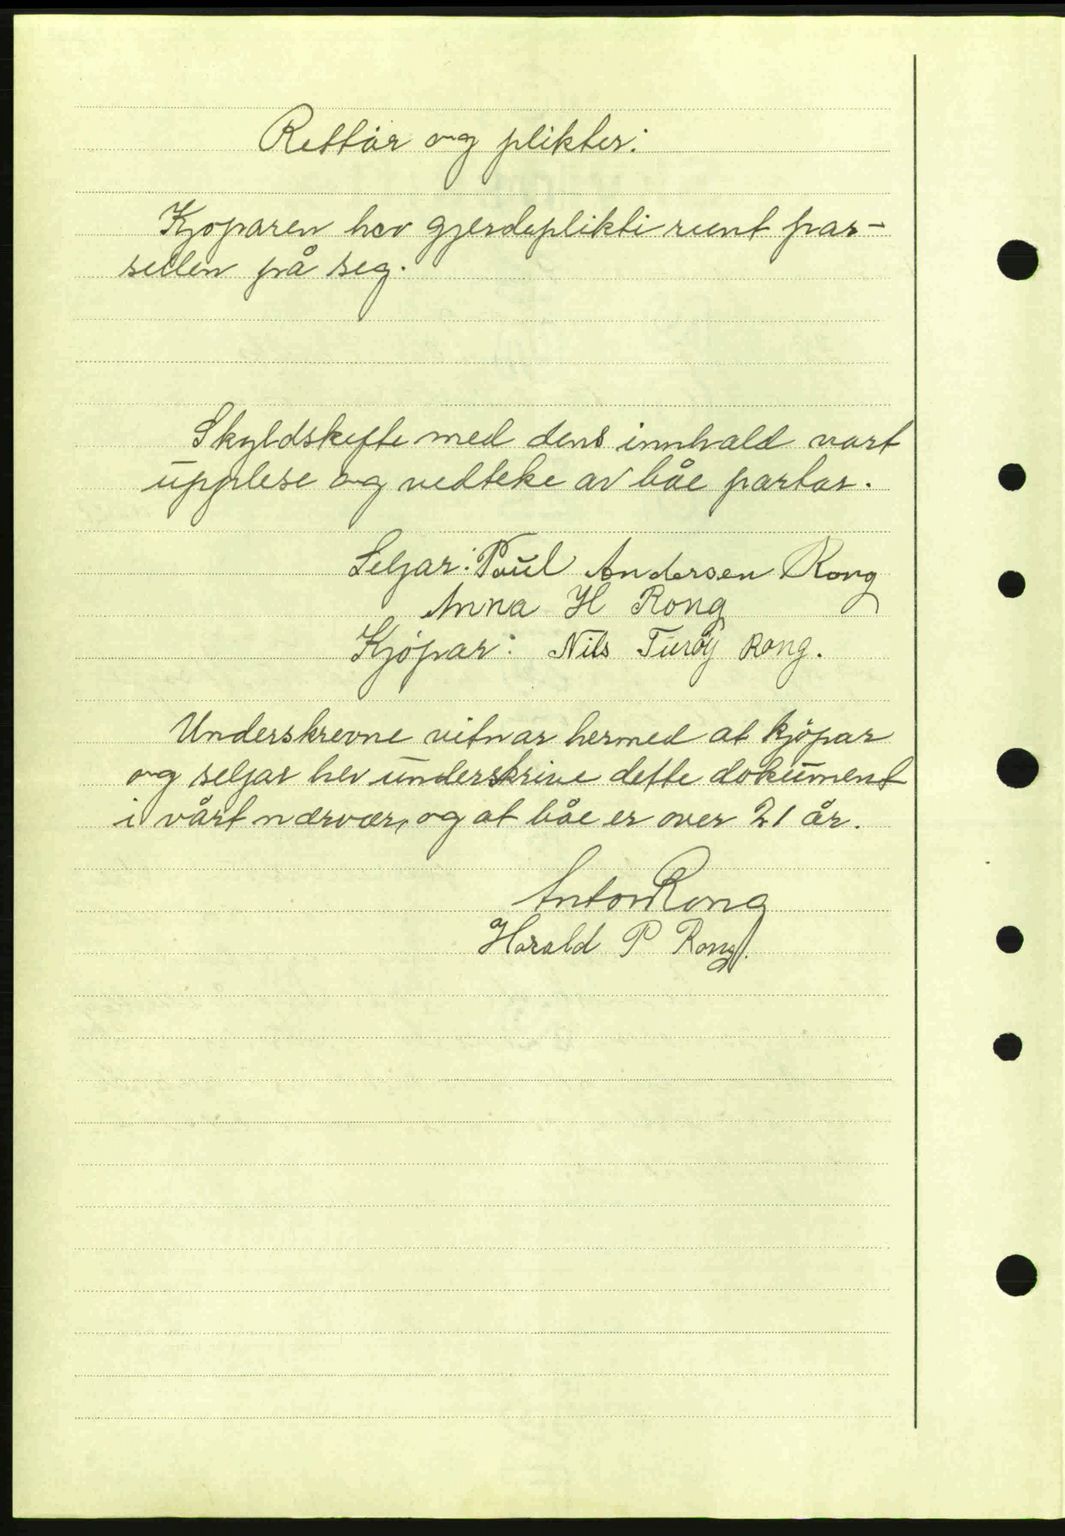 Rettar og plikter:
Kjøparen hev gjerdeplikti runt par-
sellen på seg.
Skyldskifte med dens innhald vart
upplese og vedteke av båe partar.
Seljar: Paul Andersen Rong
Anna H Rong
Kjöpar: Nils Turøy Rong.
Underskrevne vitnar hermed at kjöpar
og seljar hev underskrive dette dokument
i vårt nærvær, og at båe er over 21 år.
Anton Rong
Harald P Rong.